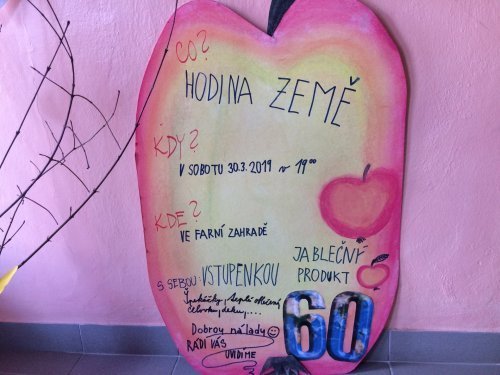 CO?
HODINA ZEMĚ
KDY?
V SOBOTU 30.3.2019 v 19⁰⁰
KDE?
VE FARNÍ ZAHRADĚ
S SEBOU: VSTUPENKOU JABLEČNÝ PRODUKT
Špekáčky, teplé oblečení
čelovku, deku, ....
Dobrou náladu ☺
RÁDI VÁS
UVIDÍME
60